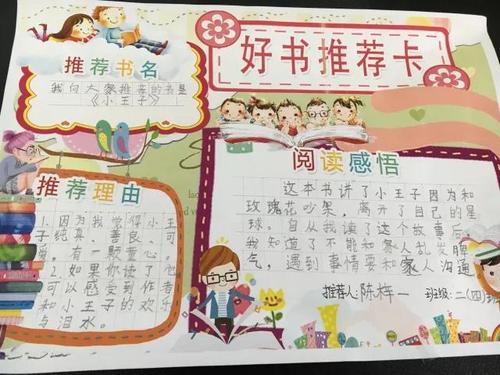 好书推荐卡
推荐书名
我向大家推荐的书是
《小王子》
阅读感悟
这本书讲了小王子因为和
玫瑰花吵果，离开了自己的星
球。自从我读了这个故事后，
我知道了不能和家人乱发脾
气，遇到事情要和家人沟通
推荐人：陈梓一 班级：二（四）班
推荐理由
1.因为我觉得小王
子纯真、善良、可
爱，有一颗童心。
2.如果你读了他
可以感受到作者
和小王子的欢乐
与泪水。